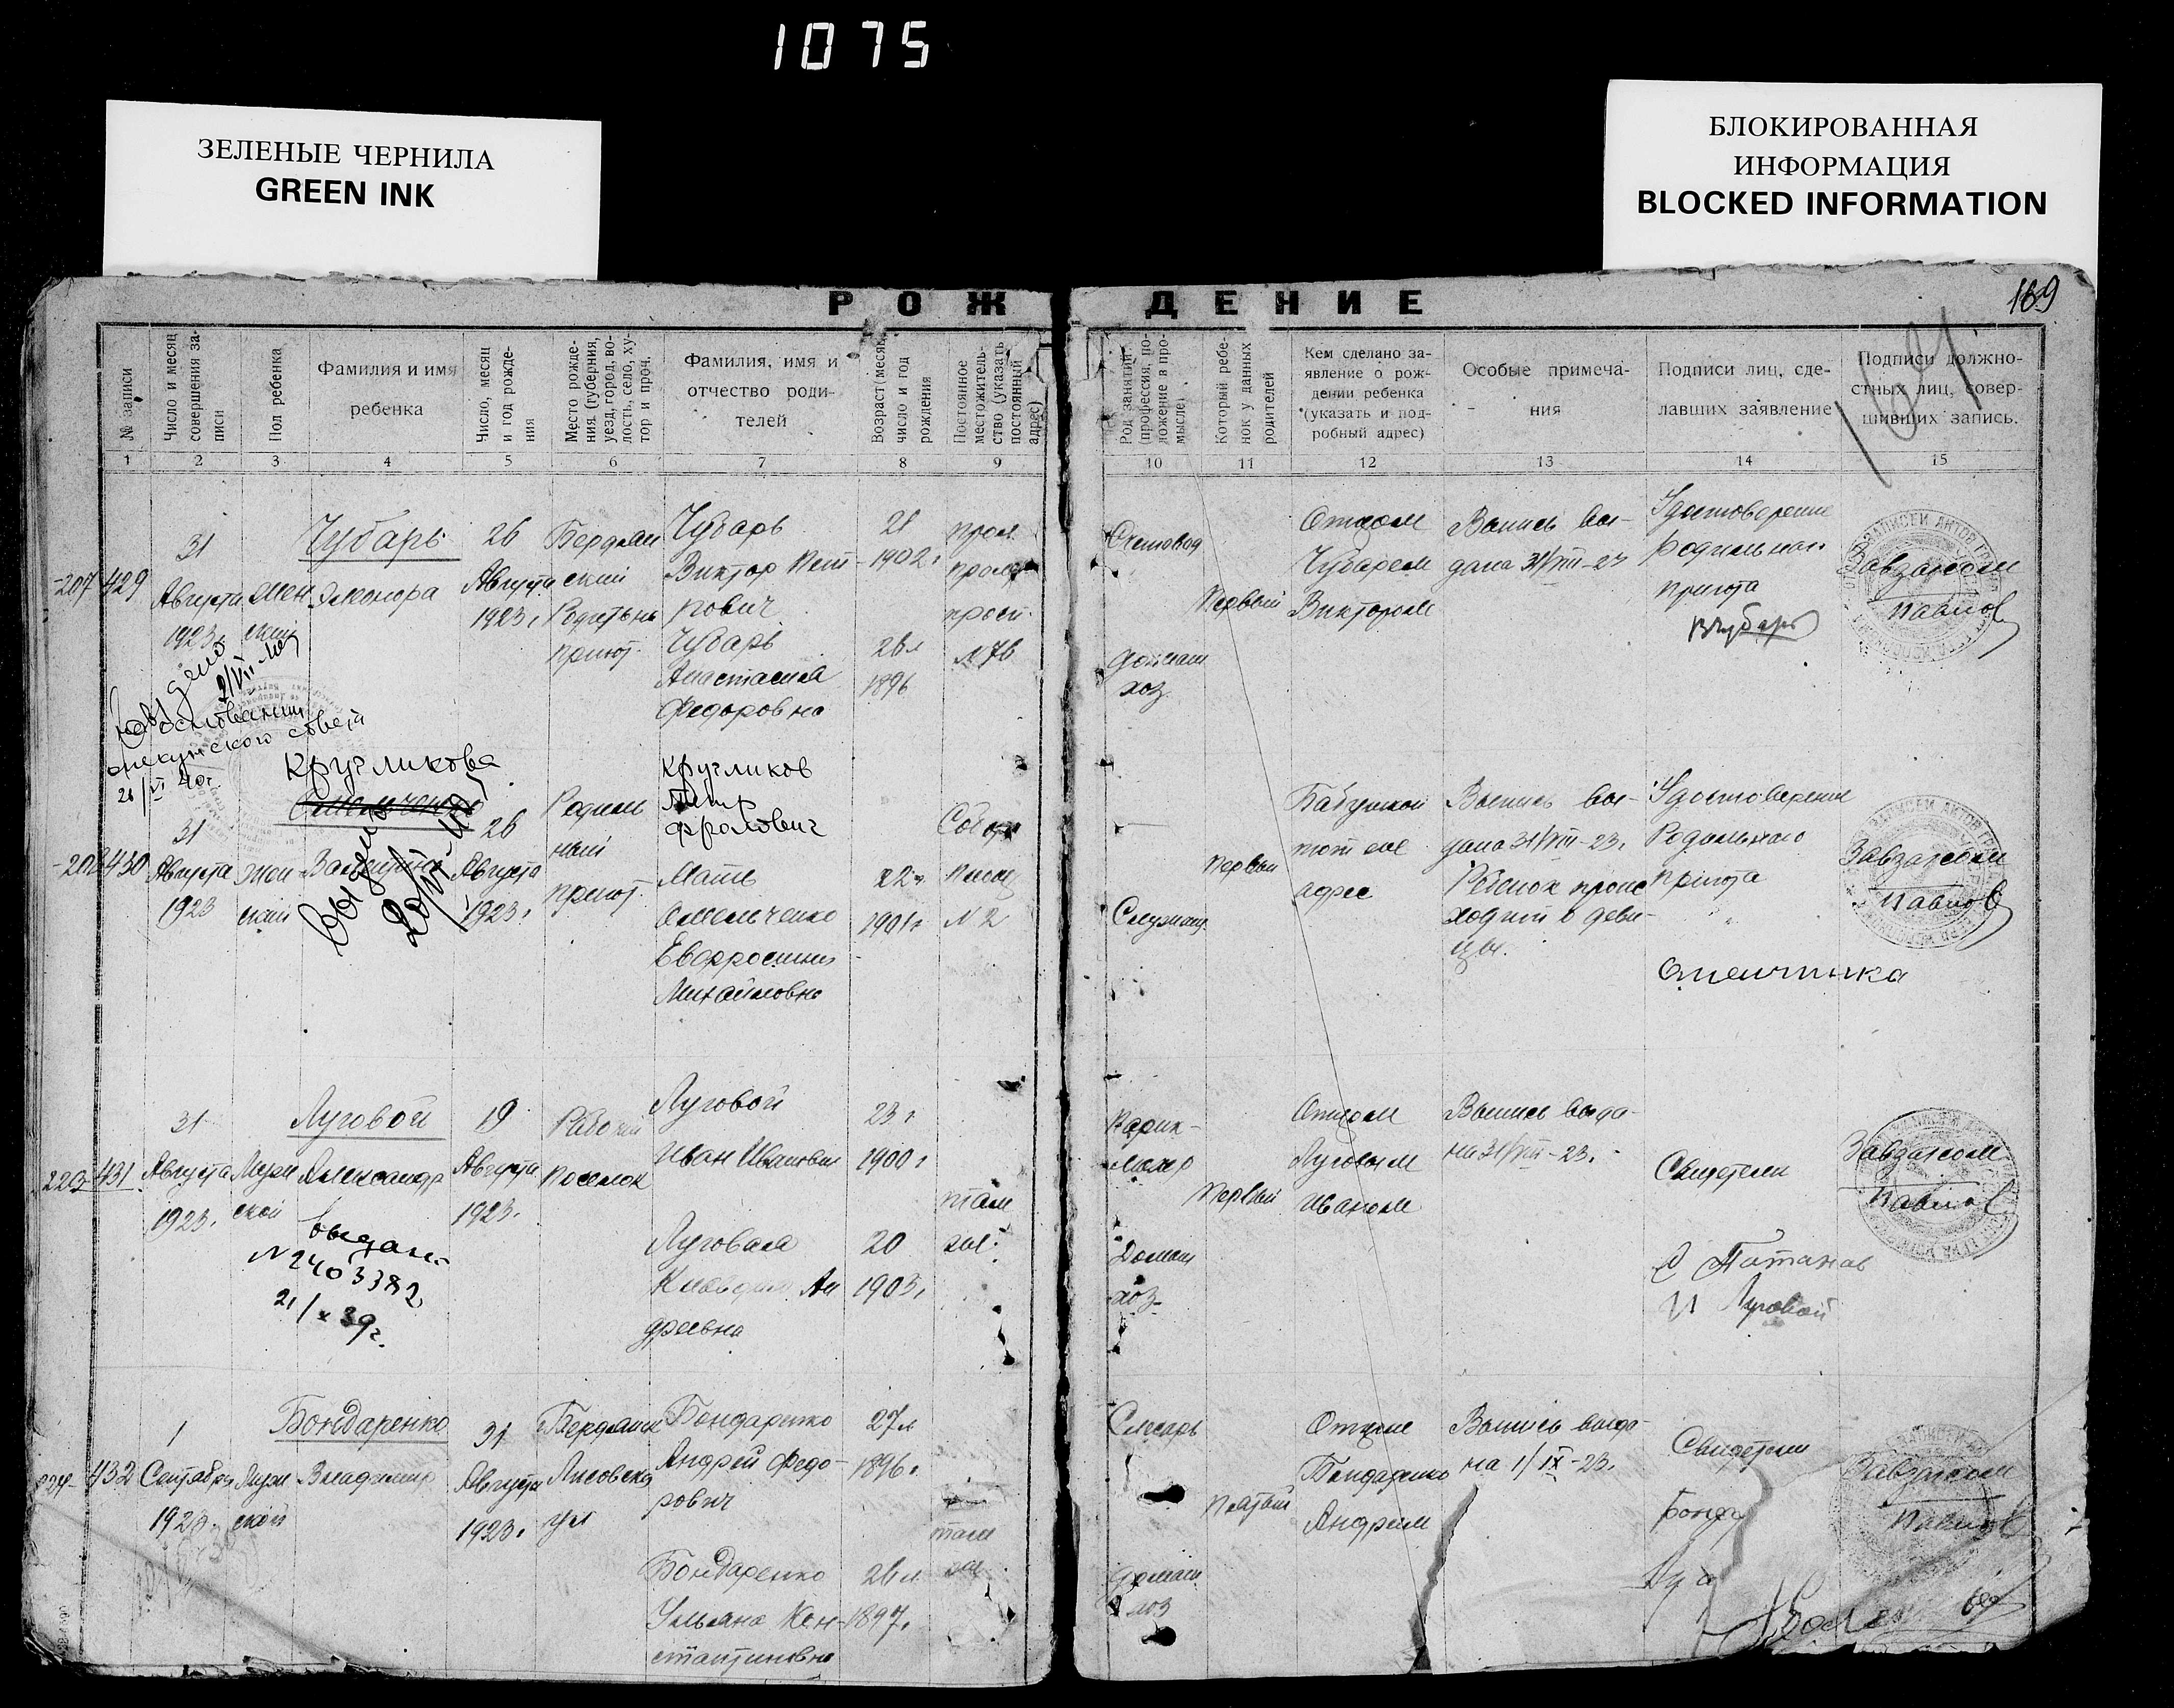 1075
ЗЕЛЕНЫЕ ЧЕРНИЛА
GREEN INK
БЛОКИРОВАННАЯ
ИНФОРМАЦИЯ
BLOCKED INFORMATION
РОЖДЕНИЕ
169
№ записи
Число и месяц
совершения за-
писи
Пол ребенка
Фамилия и имя
ребенка
Число, месяц
и год рожде-
ния
Место рожде-
ния, (губерния,
уезд, город, во-
лость, село, ху-
тор и проч.
Фамилия, имя и
отчество роди-
телей
Возраст (месяц,
число и год
рождения
Постоянное
местожитель-
ство (указать
постоянный
адрес)
Род занятий,
(профессия, по-
ложение в про-
мысле)
Который ребе-
нок у данных
родителей
Кем сделано за-
явление о рож-
дении ребенка
(указать и под-
робный адрес)
Особые примеча-
ния
Подписи лиц, сде-
лавших заявление
Подписи должно-
стных лиц, совер-
шивших запись.
1 2 3 4 5 6 7 8 9 10 11 12 13 14 15
429
31
Августа
1923г
Жен
ский
Чубарь
Элеонора
26
Августа
1923г
Бердян
ский
приют
Чубарь
Виктор Пет-
рович
Чубарь
Анастасия
Федоровна
21
1902г
26л
1896
№ 76
Счетовод
домаш
хоз.
Первый
Отцом
Чубарем
Виктором
Выпись вы-
дана 31/VIII-23
Удостоверение
родильного
приюта
ВЧубарь
Завзагсом
Павлов
На основании
опекунского совета
26/VI 40г
430
31
Августа
1923
Жен
ский
Кругликова
Омельченко
Валентина
26
Августа
1923г
Родиль
ный
приют
Кругликов
Петр
Фролович
Мать
Омельченко
Евфросиния
Михайловна
22г
1901г
№ 2
Служащ.
Первый
Бабушкой
тот же
адрес
Выпись вы-
дана 31/VIII-23г
Ребенок проис
ходит о деви-
цы.
Удостоверение
Родильного
приюта
Завзагсом
Павлов
431
31
Августа
1923г
Муж
ской
Луговой
Александр
19
Августа
1923г
Рабочий
поселок
Луговой
Иван Иванович
Луговая
Клавдия Ан
дреевна
23г
1900г
20
1903г
там
же
Домаш
хоз-
Первый
Отцом
Луговым
Иваном
Выпись выда-
на 31/VIII-23г
Свидетели
И Луговой
Завзагсом
Павлов
выдан
№2403382
21/X 39г.
432
1
Сентября
1923г
Муж
ской
Бондаренко
Владимир
31
Августа
1923г
Бердянск
Лисовская
ул
Бондаренко
Андрей Федо-
рович
Бондаренко
Ульяна Кон-
стантиновна
27л
1896г
26л
1897г
там
же
Слесарь
домаш
хоз
Пятый
Отцом
Бондаренко
Андреем
Выпись выда-
на 1/IX-23г
Свидетели
Завзагсом
Павлов